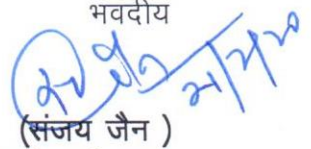 भवदीय
(संजय जैन )